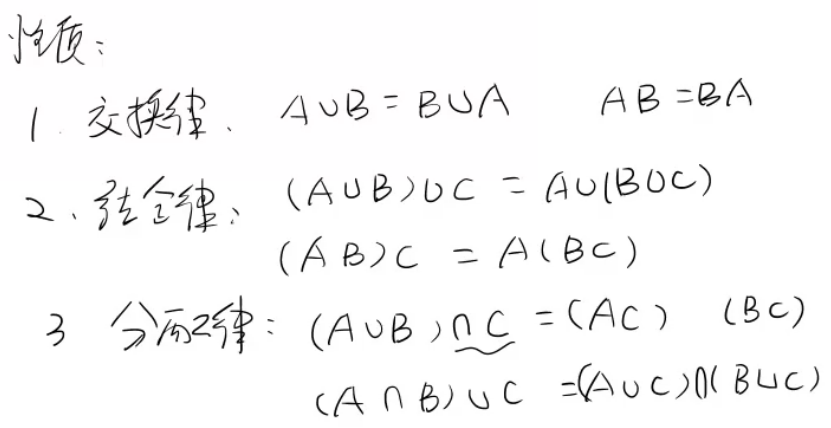 性质:
1. 交换律、 A∪B=B∪A AB=BA
2、结合律、 (A∪B)∪C = A∪(B∪C)
(AB)C = A(BC)
3 分配律: (A∪B)∩C =(AC) (BC)
(A∩B)∪C =(A∪C)∩(B∪C)